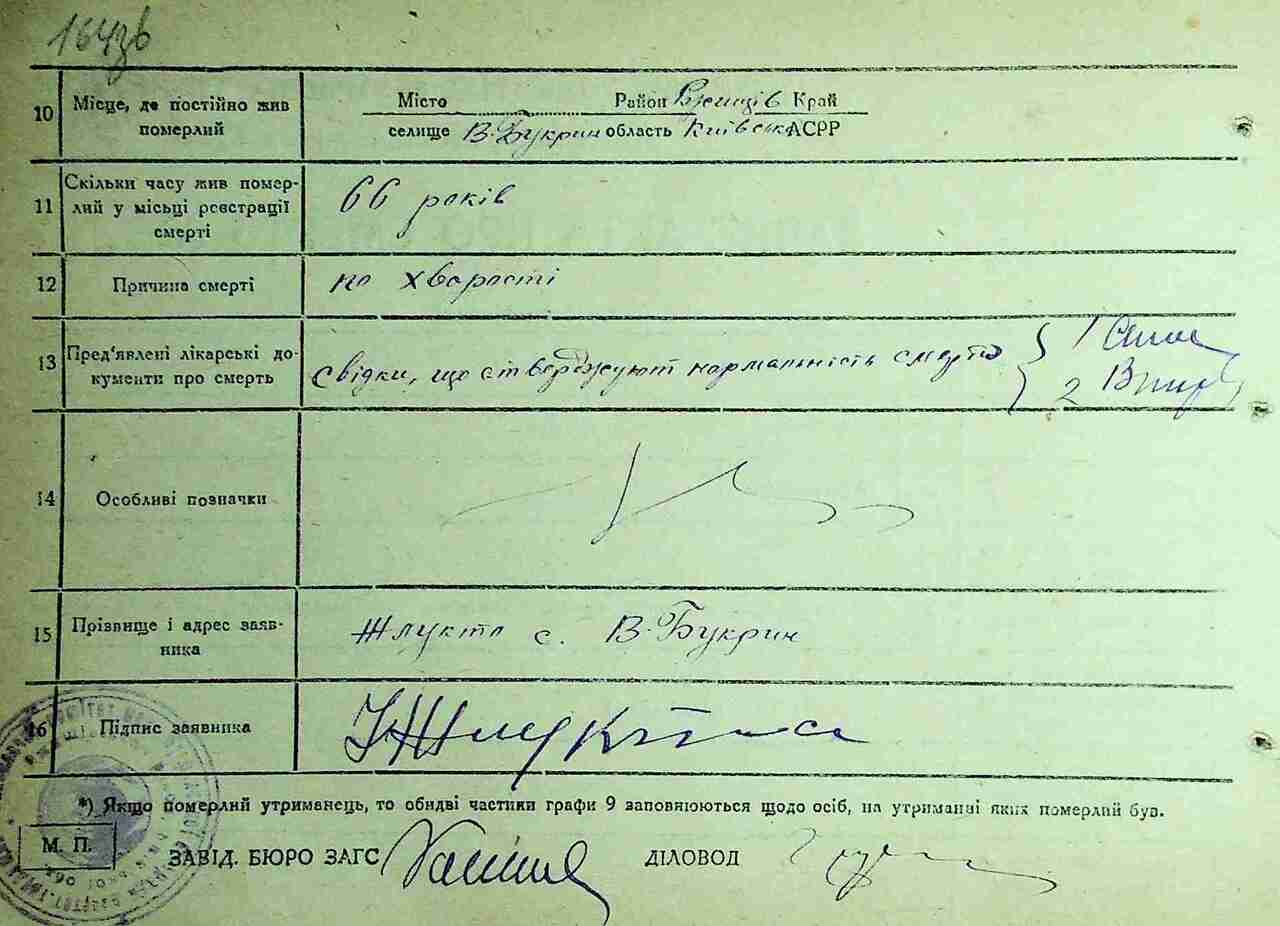 164зв
10 Місце, де постійно жив померлий
Місто Район Ржищів Край
селище В-Букрин область Київська АСРР
11 Скільки часу жив помер-
лий у місці реєстрації
смерті
66 років
12 Причина смерті
по хворості
13 Пред'явлені лікарські до-
кументи про смерть
свідки, що стверджуют нормальність смерто
1
2
14 Особливі позначки
15 Прізвище і адрес заяв-
ника
Жлукто с. В-Букрин
16 Підпис заявника
Жлукто
*) Якщо померлий утриманець, то обидві частини графи 9 заповнюються щодо осіб, на утриманні яких померлий був.
М. П.
ЗАВІД. БЮРО ЗАГС
ДІЛОВОД